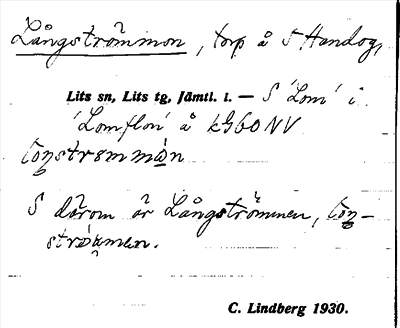 Långströmmen, torp å S Handog,
Lits sn, Lits tg, Jämtl. l. — S 'Lom' i
'Lomflon' å kG60NV
S därom är Långströmmen,
C. Lindberg 1930.